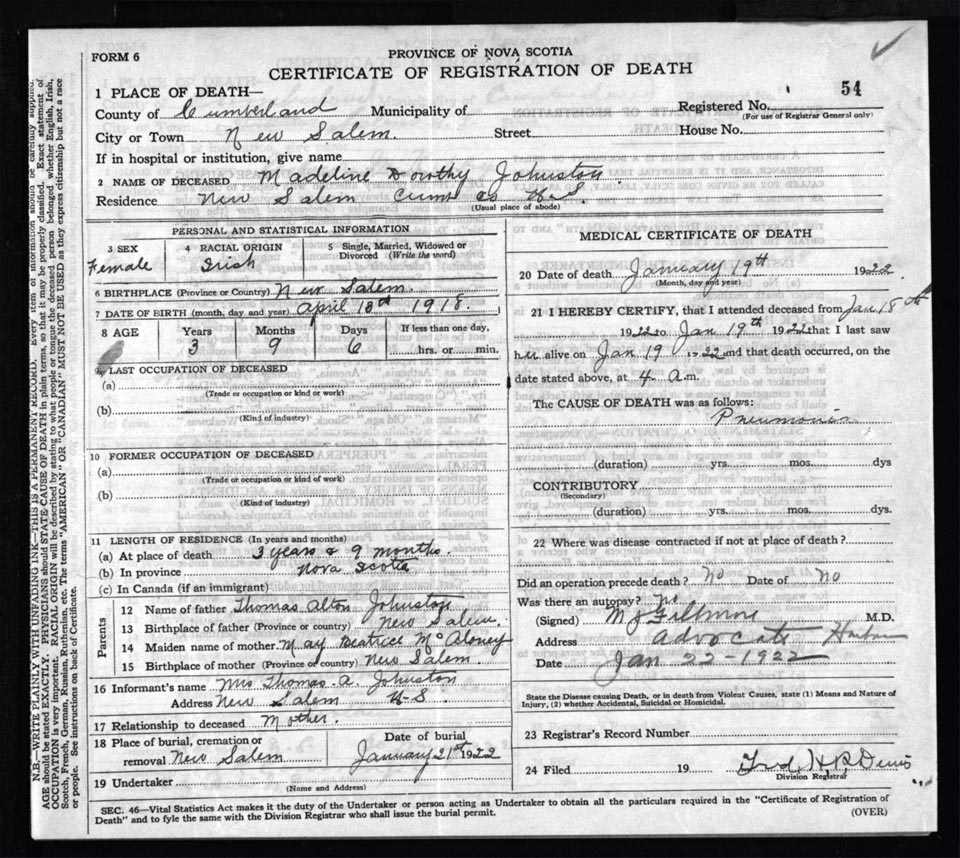 FORM 6
PROVINCE OF NOVA SCOTIA
CERTIFICATE OF REGISTRATION OF DEATH
54
1 PLACE OF DEATH—
County of Cumberland Municipality of Registered No.
(For use of Registrar General only)
City or Town New Salem. Street House No.
If in hospital or institution, give name
2 NAME OF DECEASED Madeline Dorothy Johnston
Residence New Salem Cumb Co N.S.
(Usual place of abode)
PERSONAL AND STATISTICAL INFORMATION
3 SEX 4 RACIAL ORIGIN 5 Single, Married, Widowed or Divorced (Write the word)
Female Irish
6 BIRTHPLACE (Province or Country) New Salem.
7 DATE OF BIRTH (month, day and year) April 13th 1918
8 AGE Years Months Days If less than one day,
3 9 6 hrs. or min.
9 LAST OCCUPATION OF DECEASED
(a)
(Trade or occupation or kind or work)
(b)
(Kind of industry)
10 FORMER OCCUPATION OF DECEASED
(a)
(Trade or occupation or kind of work)
(b)
(Kind of industry)
11 LENGTH OF RESIDENCE (In years and months)
(a) At place of death 3 years & 9 months.
(b) In province Nova Scotia
(c) In Canada (if an immigrant)
Parents
12 Name of father Thomas Alton Johnston
13 Birthplace of father (Province or country) New Salem.
14 Maiden name of mother. May Beatrice McAloney
15 Birthplace of mother (Province or country) New Salem
16 Informant's name Mrs Thomas. A. Johnston
Address New Salem N-S
17 Relationship to deceased Mother.
18 Place of burial, cremation or removal New Salem
Date of burial January 21st 1922
19 Undertaker
(Name and Address)
MEDICAL CERTIFICATE OF DEATH
20 Date of death January 19th 1922
(Month, day and year)
21 I HEREBY CERTIFY, that I attended deceased from Jan 18th
1922 to Jan 19th 1922 that I last saw
her alive on Jan 19 1922 and that death occurred, on the
date stated above, at 4 a.m.
The CAUSE OF DEATH was as follows:
Pneumonia
(duration) yrs. mos. dys
CONTRIBUTORY
(Secondary)
(duration) yrs. mos. dys.
22 Where was disease contracted if not at place of death?
Did an operation precede death? No Date of No
Was there an autopsy? No
(Signed) M.D.
Address Advocate Harbor
Date Jan 22-1922
State the Disease causing Death, or in death from Violent Causes, state (1) Means and Nature of
Injury, (2) whether Accidental, Suicidal or Homicidal.
23 Registrar's Record Number
24 Filed 19
Division Registrar
SEC. 46—Vital Statistics Act makes it the duty of the Undertaker or person acting as Undertaker to obtain all the particulars required in the "Certificate of Registration of
Death" and to fyle the same with the Division Registrar who shall issue the burial permit.
(OVER)
N.B—WRITE PLAINLY WITH UNFADING INK—THIS IS A PERMANENT RECORD. Every item of information should be carefully supplied.
AGE should be stated EXACTLY. PHYSICIANS should STATE CAUSE OF DEATH in plain terms, so that it may be properly classified. Exact statement of
OCCUPATION is very important. RACIAL ORIGIN will be described by stating to what people or tongue the deceased person belonged whether English, Irish,
Scotch, French, German, Russian, Ruthenian, etc. The terms "AMERICAN" or "CANADIAN" MUST NOT BE USED as they express citizenship but not a race
or people. See instructions on back of Certificate.